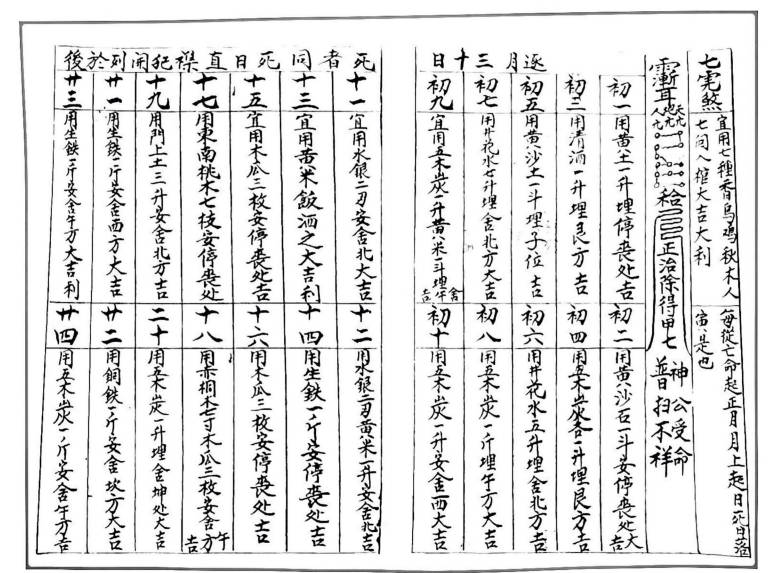 七鬼煞
宜用七種香烏鳴秋木人
七问入棺大吉大利
每從亡命起正月月上起日死日落
寅是也
正治除得甲七
神公受命
普扫不祥
逐月三十日
初一 用黄土一升埋停喪处吉
初二 用黄沙石一斗安停喪处大吉
初三 用清酒一升埋艮方吉
初四 用五木炭各一升埋艮方吉
初五 用黄沙土一斗埋子位吉
初六 用井花水五升埋舍北方吉
初七 用井花水七升埋舍北方大吉
初八 用五木炭一斤埋午方大吉
初九 宜用五木炭一升黄米一斗埋舍午吉
初十 用五木炭一升安舍西大吉
死者同死日直襟犯開列於後
十一 宜用水银二刃安舍北大吉
十二 用水银二刃黄米一升安舍北吉
十三 宜用黄米飯洒之大吉利
十四 用生鉄一斤安停喪处吉
十五 宜用木瓜三枚安停喪处吉
十六 用木瓜三枚安停喪处吉
十七 用東南桃木七枝安停喪处
十八 用赤桐木七寸木瓜三枚安舍午方吉
十九 用門上土三升安舍北方吉
二十 用五木炭一升埋舍坤处大吉
廿一 用生鉄一斤安舍西方大吉
廿二 用銅鉄一斤安舍坎方大吉
廿三 用生鉄一斤安舍午方大吉利
廿四 用五木炭一斤安舍午方吉